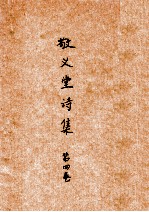 敬义堂诗集
第四卷